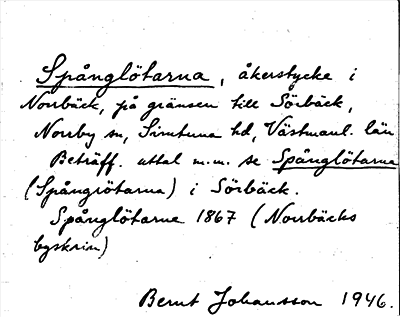 Spånglötarna, åkerstycke i
Norrbäck, på gränsen till Sörbäck,
Norrby sn, Simtuna hd, Västmanl. län
Beträff. uttal m.m. se Spånglötarna
(Spångrötarna) i Sörbäck.
Spånglötarne 1867 (Norrbäcks
byskrin)
Bernt Johansson 1946.